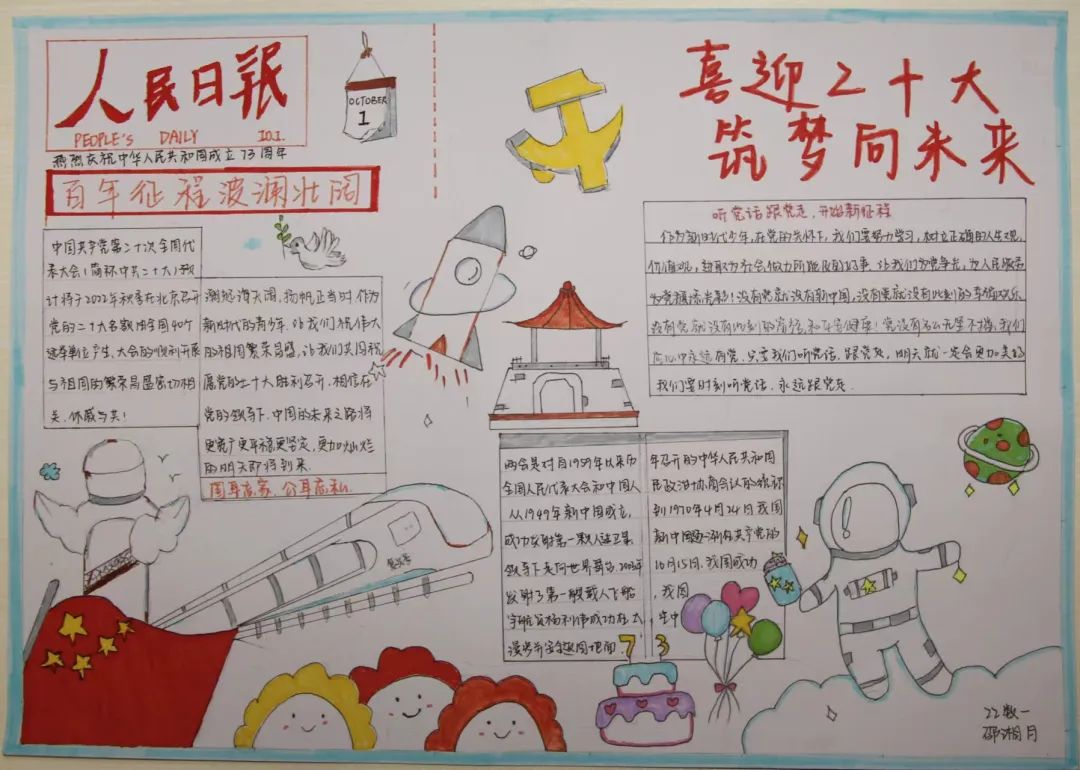 人民日报
PEOPLE'S DAILY 10.1.
热烈庆祝中华人民共和国成立73周年
百年征程波澜壮阔
OCTOBER
1
喜迎二十大
筑梦向未来
中国共产党第二十次全国代
表大会(简称中共二十大)预
计将于2022年秋季在北京召开
党的二十大名额由全国40个
选举单位产生.大会的顺利开展
与祖国的繁荣昌盛密切相
关.休戚与共!
潮起海天阔,扬帆正当时.作为
新时代的青少年.让我们祝伟大
的祖国繁荣昌盛,让我们共同祝
愿党的二十大胜利召开.相信在
党的领导下.中国的未来之路将
更宽广更平稳更坚定,更加灿烂
的明天即将到来.
国耳忘家.公耳忘私.
听党话跟党走,开始新征程
作为新时代少年,在党的关怀下,我们要努力学习,树立正确的人生观,
价值观,争取为社会做力所能及的好事.让我们为党争光,为人民服务
为党旗添光彩!没有党就没有新中国,没有党就没有此刻的幸福欢乐
没有党就没有此刻的富裕和
党没有
我们
心中永远有党.只要我们听党话.跟党走,明天就一定会更加美好
我们要时刻听党话.永远跟党走.
两会是对自1959年以来历
全国人民代表大会和中国人
从1949年新中国成立,
成功发射第一颗人造卫星
领导下走向世界
2003年
发射了第一艘载人飞船
宇航员杨利伟成功在太
漫步并安全返回地面.
年召开的中华人民共和国
民政治协商会议的统称
到1970年4月24日我国
新中国
在共产党的
10月15日.我国成功
,我国
空中
复兴号
73
22数一
邵湘月